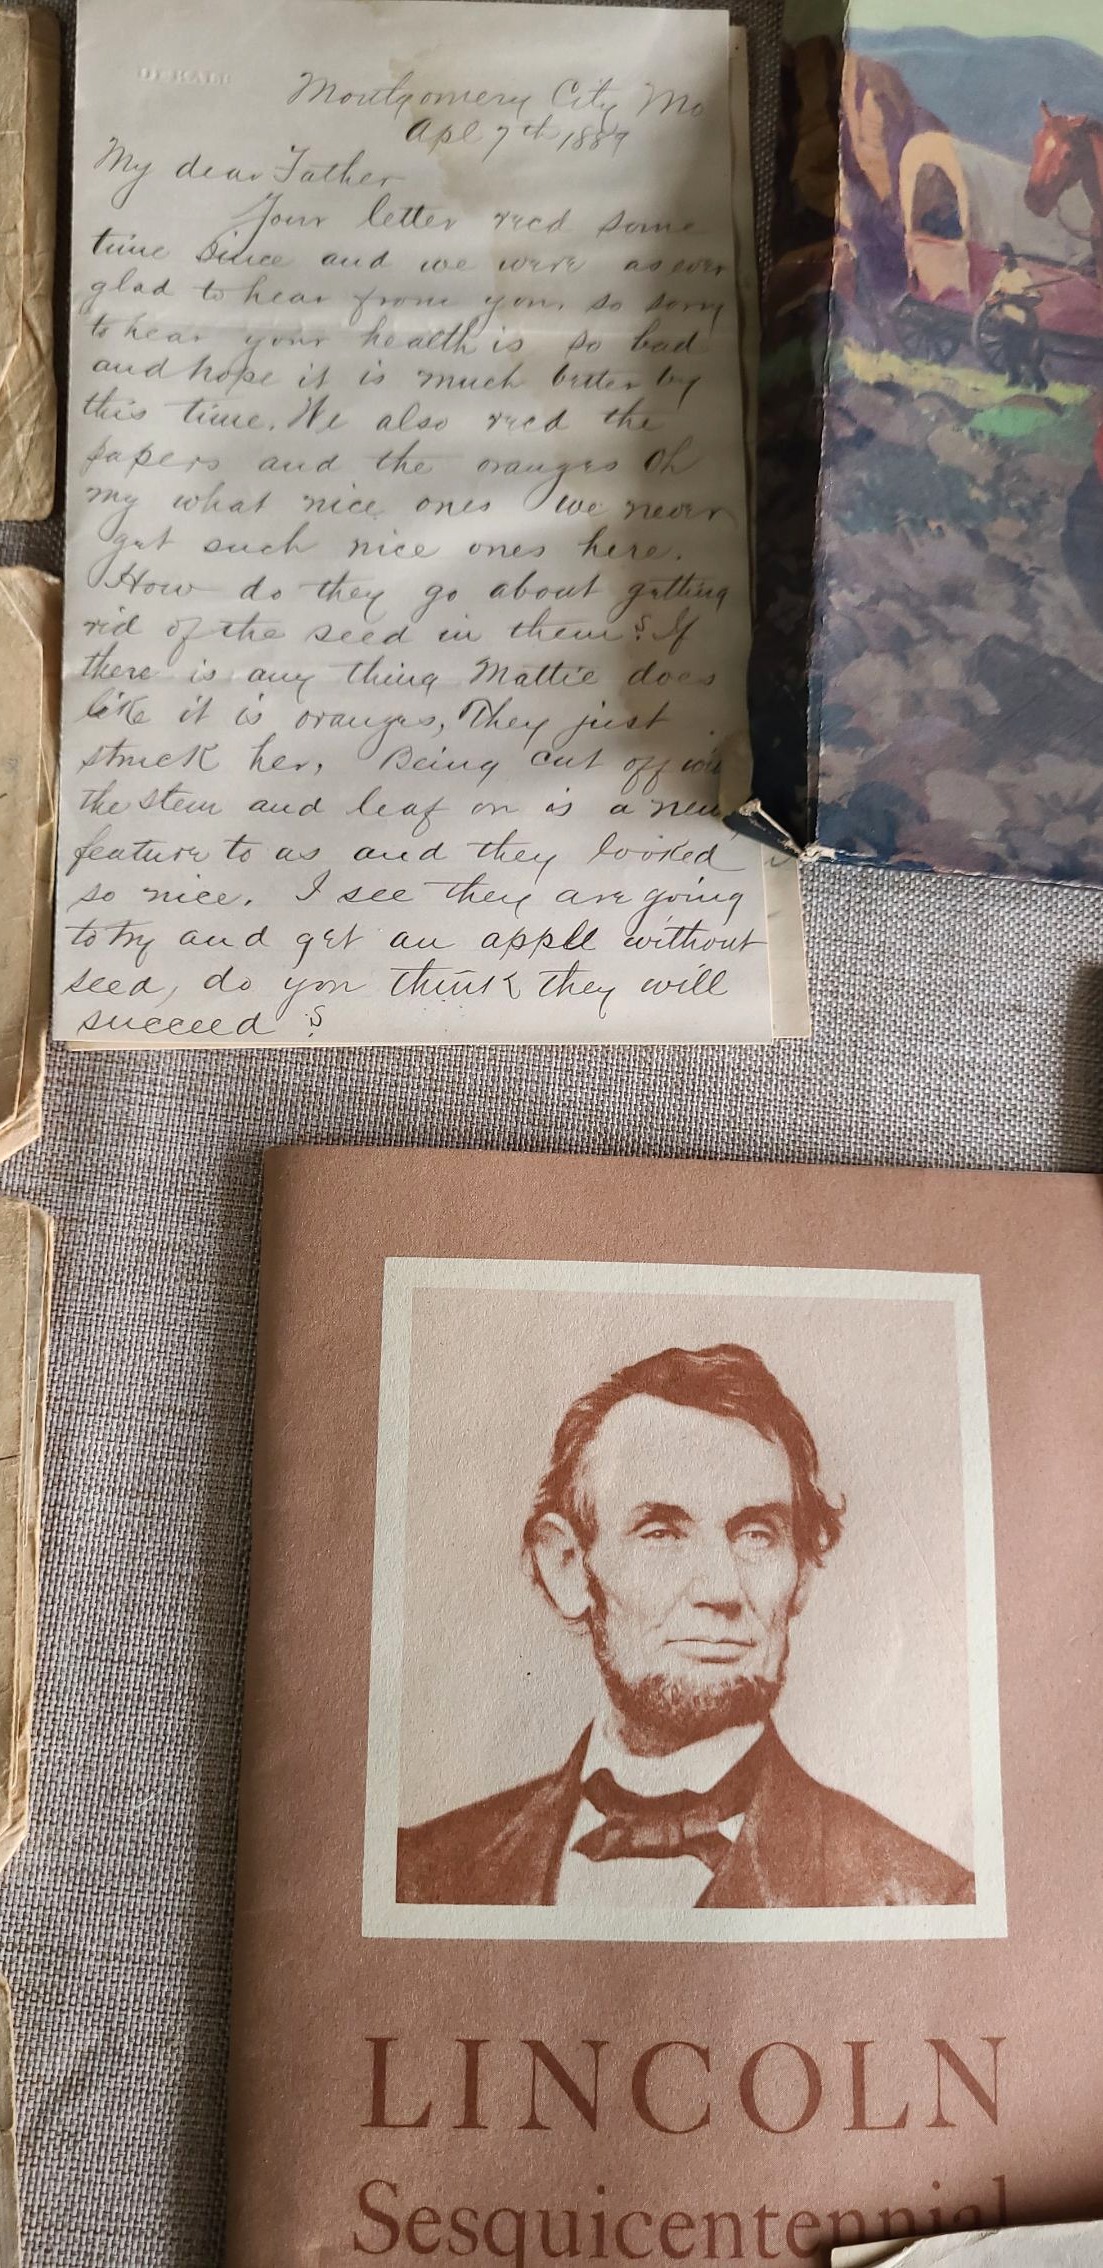 Montgomery City Mo
Apl 7th 1889
My dear Father
Your letter recd some
time since and we were as ever
glad to hear from you, so sorry
to hear your health is so bad
and hope it is much better by
this time. We also recd the
papers and the oranges Oh
my what nice ones we never
get such nice ones here.
How do they go about getting
rid of the seed in them? If
there is any thing Mattie does
like it is oranges, They just
struck her, Being cut off
the stem and leaf on is a new
feature to us and they looked
so nice. I see they are going
to try and get an apple without
seed, do you think they will
succeed ?
LINCOLN
Sesquicentennial